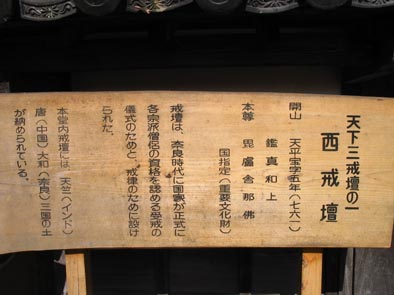 天下三戒壇の一
西戒壇
開山 天平宝字五年(七六一)
鑑真和上
本尊 毘盧舎那佛
国指定(重要文化財)
戒壇は、奈良時代に国家が正式に
各宗派僧の資格を認める受戒の
儀式のためと、戒律のために設け
られた。
本堂内戒壇には、天竺(インド)
唐(中国)大和(奈良)三国の土
が納められている。